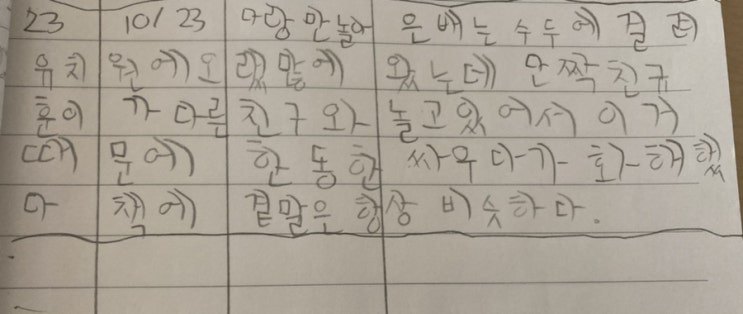 23 10/23 마당 만 놀아 은배는 수두에 걸려
유치원에 오랬많에 왔는데 단짝친구
훈이가 다른 친구와 놀고있어서 이거
때문에 한동한 싸우다가 화해했
다 책에 곁말은 항상 비슷하다.